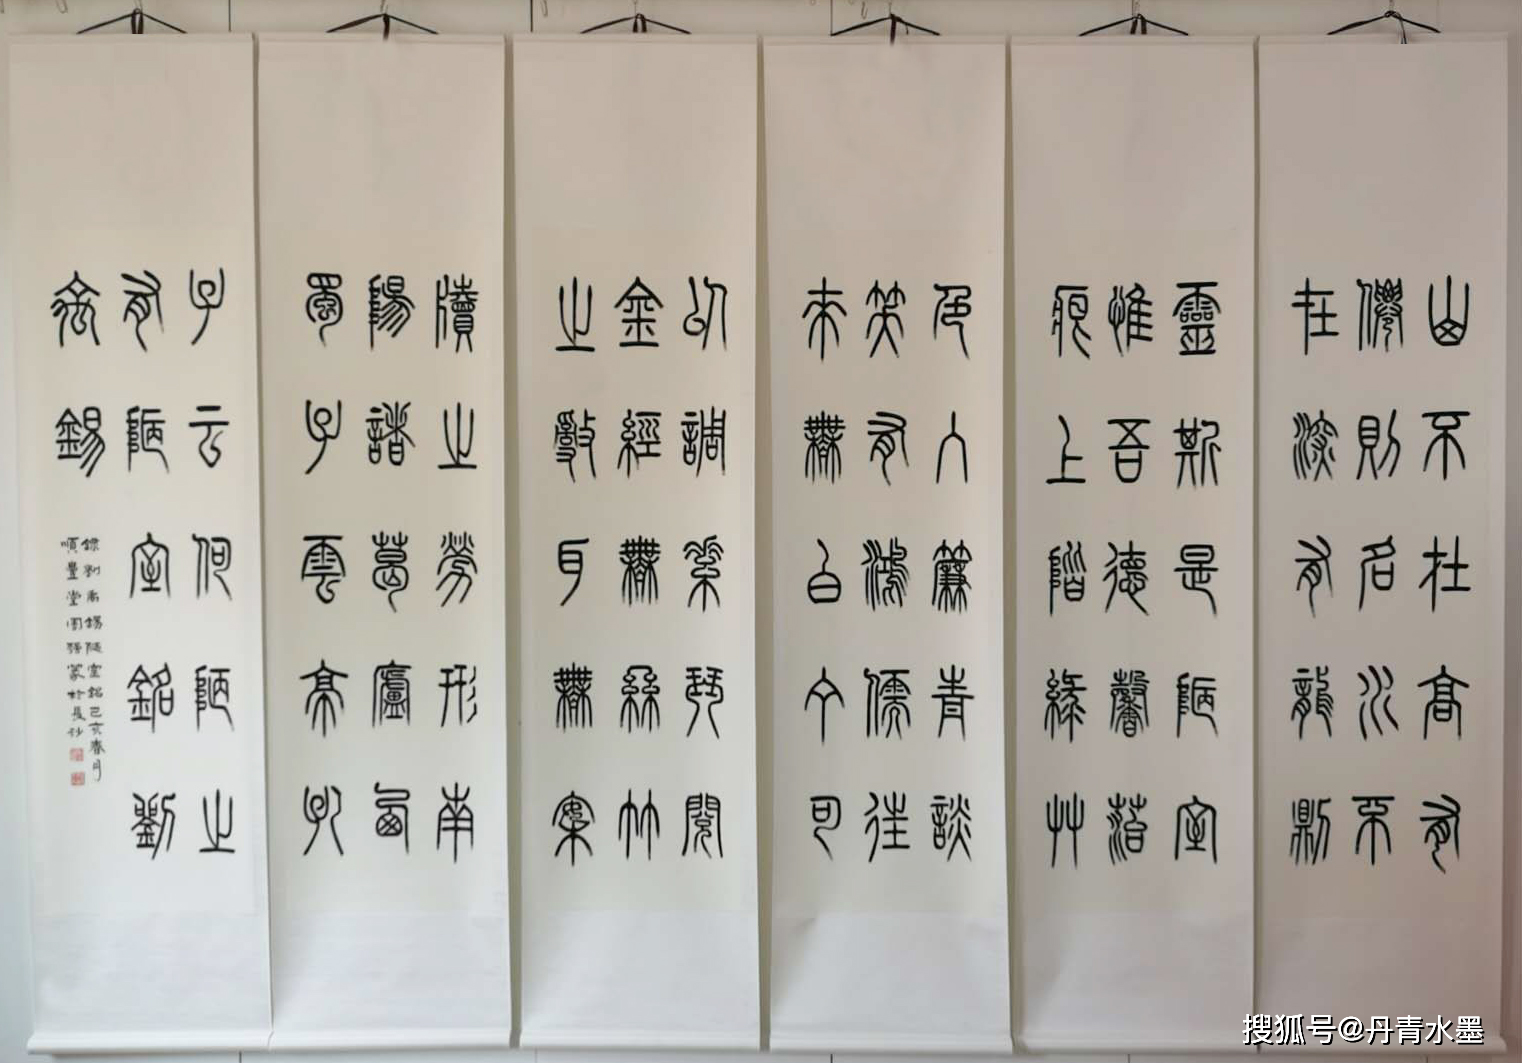 山不在高有
僊則名水不
在深有龍則
靈斯是陋室
惟吾德馨苔
痕上階綠艸
色入簾青談
笑有鴻儒往
來無白丁可
以調素琴閱
金經無絲竹
之亂耳無案
牘之勞形南
陽諸葛廬西
蜀子雲亭孔
子云何陋之
有陋室銘劉
禹錫
錄劉禹錫陋室銘己亥春月
順豐堂周強篆於長沙
搜狐号@丹青水墨